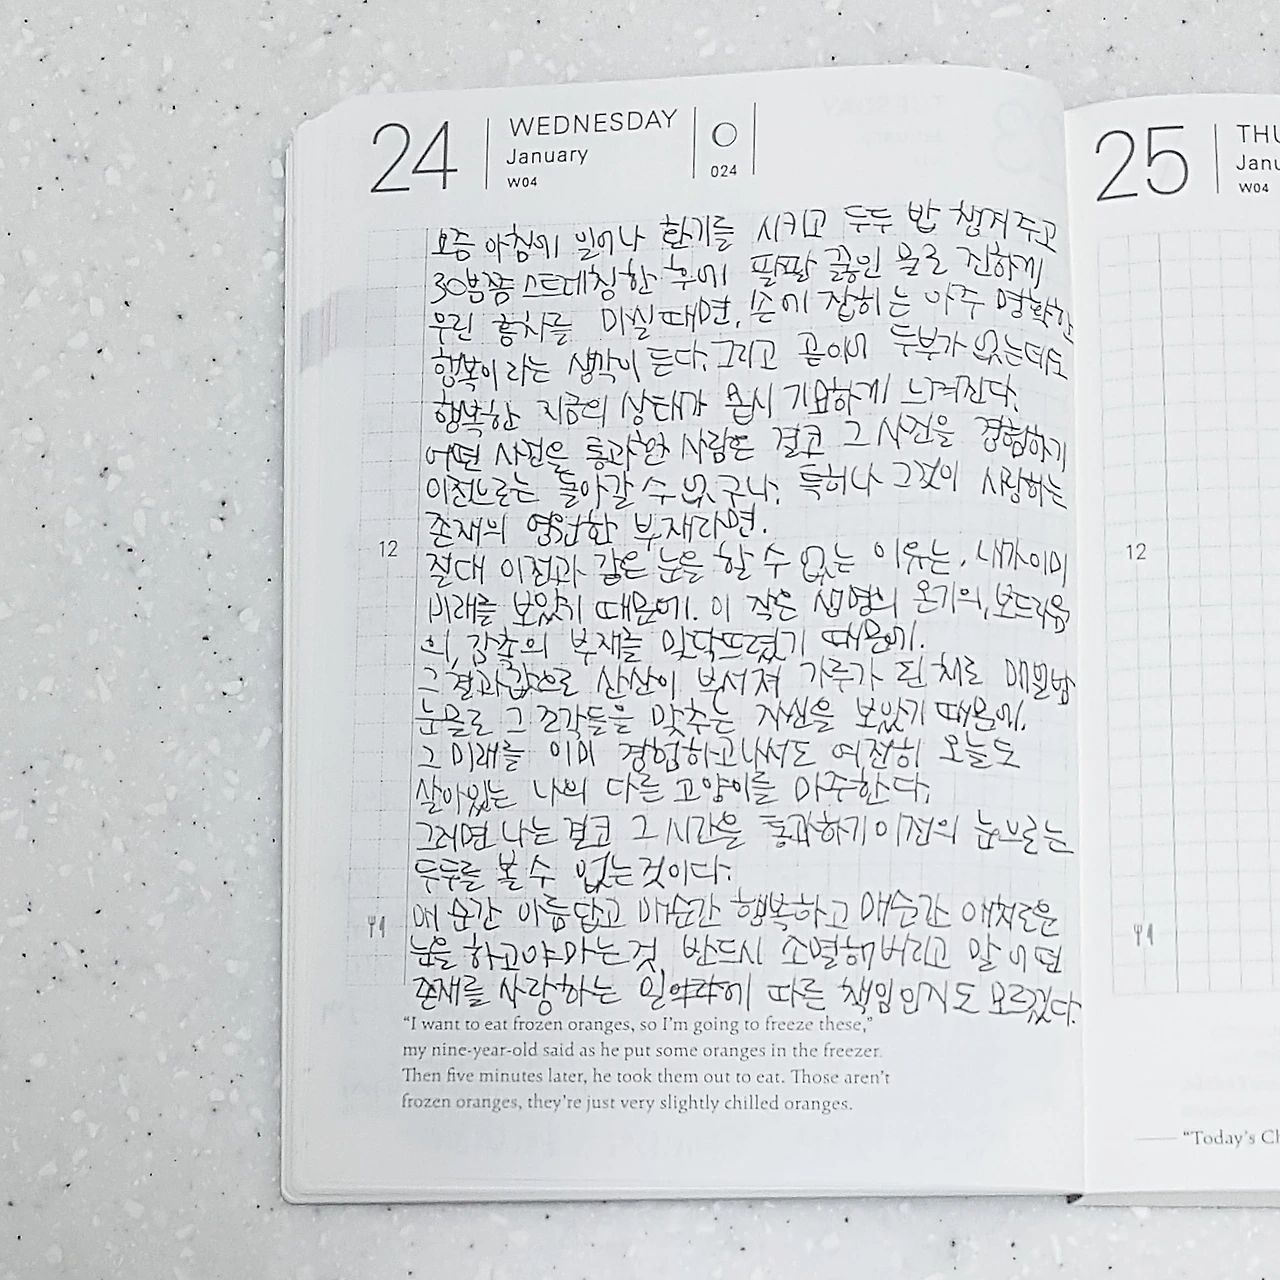 24
WEDNESDAY
January
W04
024
요즘 아침에 일어나 환기를 시키고 두두 밥 챙겨주고
30분쯤 스트레칭 한 후에 팔팔 끓인 물로 진하게
우린 홍차를 마실때면, 손에 잡히는 아주 명확한
행복이라는 생각이 든다. 그리고 곧이어 두부가 없는데도
행복한 지금의 상태가 몹시 기묘하게 느껴진다.
어떤 사건을 통과한 사람은 결코 그 사건을 경험하기
이전으로는 돌아갈 수 없구나. 특히나 그것이 사랑하는
존재의 영원한 부재라면.
절대 이전과 같은 눈을 할 수 없는 이유는, 내가 이미
미래를 보았기 때문에. 이 작은 생명의 온기의, 보드라움
의, 감촉의 부재를 맞닥뜨렸기 때문에.
그 결과값으로 산산이 부서져 가루가 된 채로 매일밤
눈물로 그 조각들을 맞추는 자신을 보았기 때문에.
그 미래를 이미 경험하고나서도 여전히 오늘도
살아있는 나의 다른 고양이를 마주한다.
그러면 나는 결코 그 시간을 통과하기 이전의 눈으로는
두두를 볼 수 없는 것이다.
매 순간 아름답고 매순간 행복하고 매순간 애처로운
눈을 하고야 마는 것. 반드시 소멸해버리고 말
존재를 사랑하는 일이란 다른 책임인지도 모르겠다.
12
"I want to eat frozen oranges, so I'm going to freeze these,"
my nine-year-old said as he put some oranges in the freezer.
Then five minutes later, he took them out to eat. Those aren't
frozen oranges, they're just very slightly chilled oranges.
25
THU
Janu
W04
12
"Today's Ch